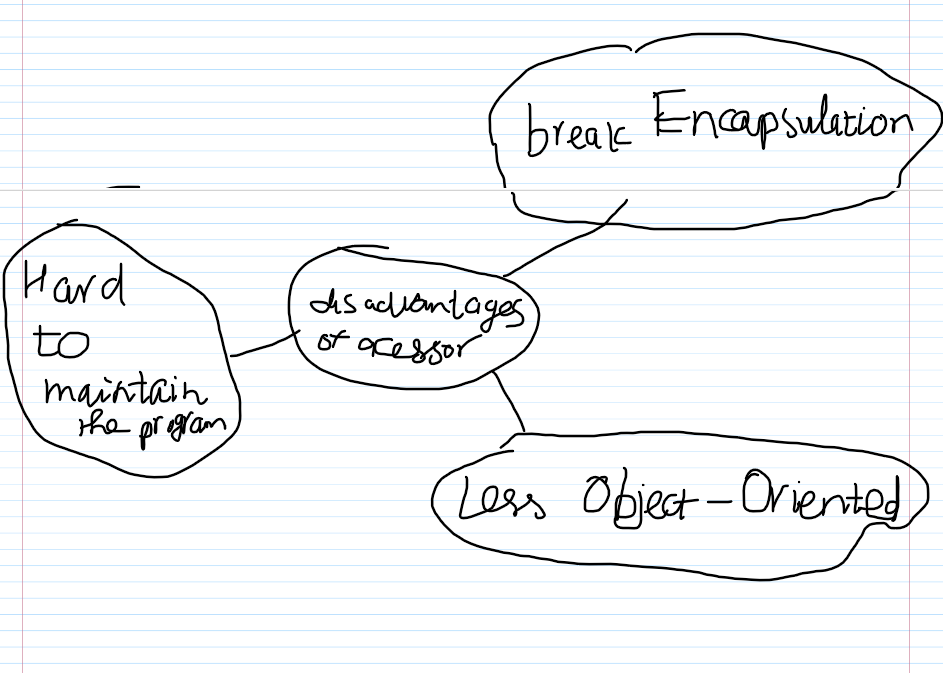 break Encapsulation
Hard
to
maintain
the program
disadvantages
of acessor
Less Object-Oriented